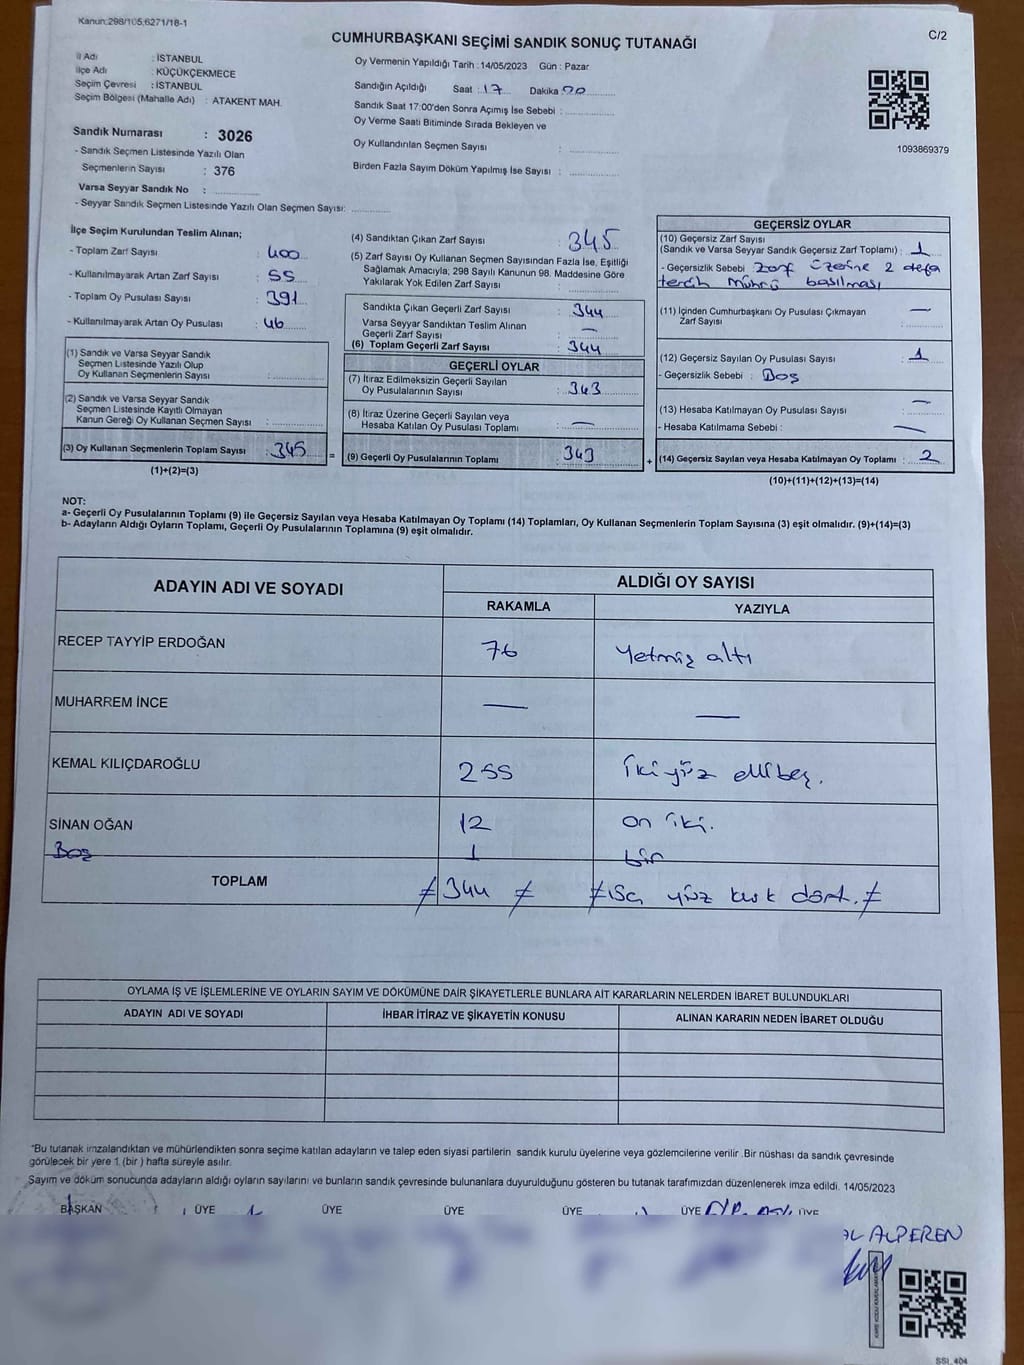 Kanun:298/105,6271/18-1
C/2
CUMHURBAŞKANI SEÇİMİ SANDIK SONUÇ TUTANAĞI
İl Adı : İSTANBUL
İlçe Adı : KÜÇÜKÇEKMECE
Seçim Çevresi : İSTANBUL
Seçim Bölgesi (Mahalle Adı) : ATAKENT MAH.
Sandık Numarası : 3026
- Sandık Seçmen Listesinde Yazılı Olan
Seçmenlerin Sayısı : 376
Varsa Seyyar Sandık No :
- Seyyar Sandık Seçmen Listesinde Yazılı Olan Seçmen Sayısı:
Oy Vermenin Yapıldığı Tarih :14/05/2023 Gün : Pazar
Sandığın Açıldığı Saat : 17 Dakika : 00
Sandık Saat 17:00'den Sonra Açımış İse Sebebi :
Oy Verme Saati Bitiminde Sırada Bekleyen ve
Oy Kullandırılan Seçmen Sayısı :
Birden Fazla Sayım Döküm Yapılmış İse Sayısı :
1093869379
İlçe Seçim Kurulundan Teslim Alınan;
- Toplam Zarf Sayısı : 400
- Kullanılmayarak Artan Zarf Sayısı : 55
- Toplam Oy Pusulası Sayısı : 391
- Kullanılmayarak Artan Oy Pusulası : 46
(1) Sandık ve Varsa Seyyar Sandık
Seçmen Listesinde Yazılı Olup
Oy Kullanan Seçmenlerin Sayısı :
(2) Sandık ve Varsa Seyyar Sandık
Seçmen Listesinde Kayıtlı Olmayan
Kanun Gereği Oy Kullanan Seçmen Sayısı :
(3) Oy Kullanan Seçmenlerin Toplam Sayısı : 345
(1)+(2)=(3)
=
(4) Sandıktan Çıkan Zarf Sayısı : 345
(5) Zarf Sayısı Oy Kullanan Seçmen Sayısından Fazla İse, Eşitliği
Sağlamak Amacıyla; 298 Sayılı Kanunun 98. Maddesine Göre
Yakılarak Yok Edilen Zarf Sayısı :
Sandıkta Çıkan Geçerli Zarf Sayısı : 344
Varsa Seyyar Sandıktan Teslim Alınan
Geçerli Zarf Sayısı : —
(6) Toplam Geçerli Zarf Sayısı : 344
GEÇERLİ OYLAR
(7) İtiraz Edilmeksizin Geçerli Sayılan
Oy Pusulalarının Sayısı : 343
(8) İtiraz Üzerine Geçerli Sayılan veya
Hesaba Katılan Oy Pusulası Toplamı : —
(9) Geçerli Oy Pusulalarının Toplamı : 343
+
GEÇERSİZ OYLAR
(10) Geçersiz Zarf Sayısı
(Sandık ve Varsa Seyyar Sandık Geçersiz Zarf Toplamı) : 1
- Geçersizlik Sebebi : Zarf üzerine 2 defa
tercih Mührü basılması
(11) İçinden Cumhurbaşkanı Oy Pusulası Çıkmayan
Zarf Sayısı : —
(12) Geçersiz Sayılan Oy Pusulası Sayısı : 1
- Geçersizlik Sebebi : Boş
(13) Hesaba Katılmayan Oy Pusulası Sayısı : —
- Hesaba Katılmama Sebebi : —
(14) Geçersiz Sayılan veya Hesaba Katılmayan Oy Toplamı : 2
(10)+(11)+(12)+(13)=(14)
NOT:
a- Geçerli Oy Pusulalarının Toplamı (9) ile Geçersiz Sayılan veya Hesaba Katılmayan Oy Toplamı (14) Toplamları, Oy Kullanan Seçmenlerin Toplam Sayısına (3) eşit olmalıdır. (9)+(14)=(3)
b- Adayların Aldığı Oyların Toplamı, Geçerli Oy Pusulalarının Toplamına (9) eşit olmalıdır.
ADAYIN ADI VE SOYADI
ALDIĞI OY SAYISI
RAKAMLA YAZIYLA
RECEP TAYYİP ERDOĞAN 76 Yetmiş altı
MUHARREM İNCE — —
KEMAL KILIÇDAROĞLU 255 İki yüz elli beş.
SİNAN OĞAN 12 on iki.
Boş 1 bir
TOPLAM ≠ 344 ≠ ≠ üç yüz kırk dört. ≠
OYLAMA İŞ VE İŞLEMLERİNE VE OYLARIN SAYIM VE DÖKÜMÜNE DAİR ŞİKAYETLERLE BUNLARA AİT KARARLARIN NELERDEN İBARET BULUNDUKLARI
ADAYIN ADI VE SOYADI İHBAR İTİRAZ VE ŞİKAYETİN KONUSU ALINAN KARARIN NEDEN İBARET OLDUĞU
*Bu tutanak imzalandıktan ve mühürlendikten sonra seçime katılan adayların ve talep eden siyasi partilerin sandık kurulu üyelerine veya gözlemcilerine verilir .Bir nüshası da sandık çevresinde
görülecek bir yere 1 (bir ) hafta süreyle asılır.
Sayım ve döküm sonucunda adayların aldığı oyların sayılarını ve bunların sandık çevresinde bulunanlara duyurulduğunu gösteren bu tutanak tarafımızdan düzenlenerek imza edildi. 14/05/2023
BAŞKAN ÜYE ÜYE ÜYE ÜYE ÜYE ÜYE
ALPEREN
SSI_404